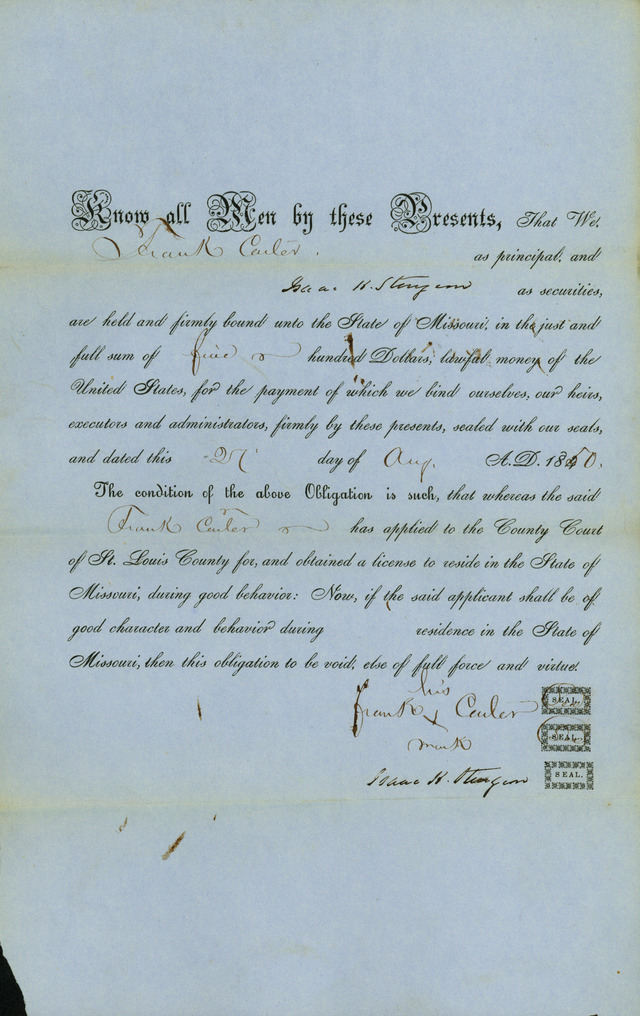 Know all Men by these Presents, That We,
Frank Carter. as principal, and
Isaac H. Sturgeon as securities,
are held and firmly bound unto the State of Missouri, in the just and
full sum of five hundred Dollars, lawful money of the
United States, for the payment of which we bind ourselves, our heirs,
executors and administrators, firmly by these presents, sealed with our seals,
and dated this 27 day of Aug. A.D. 1850.
The condition of the above Obligation is such, that whereas the said
Frank Carter has applied to the County Court
of St. Louis County for, and obtained a license to reside in the State of
Missouri, during good behavior: Now, if the said applicant shall be of
good character and behavior during residence in the State of
Missouri, then this obligation to be void, else of full force and virtue.
his
Frank x Carter SEAL.
mark SEAL.
Isaac H. Sturgeon SEAL.